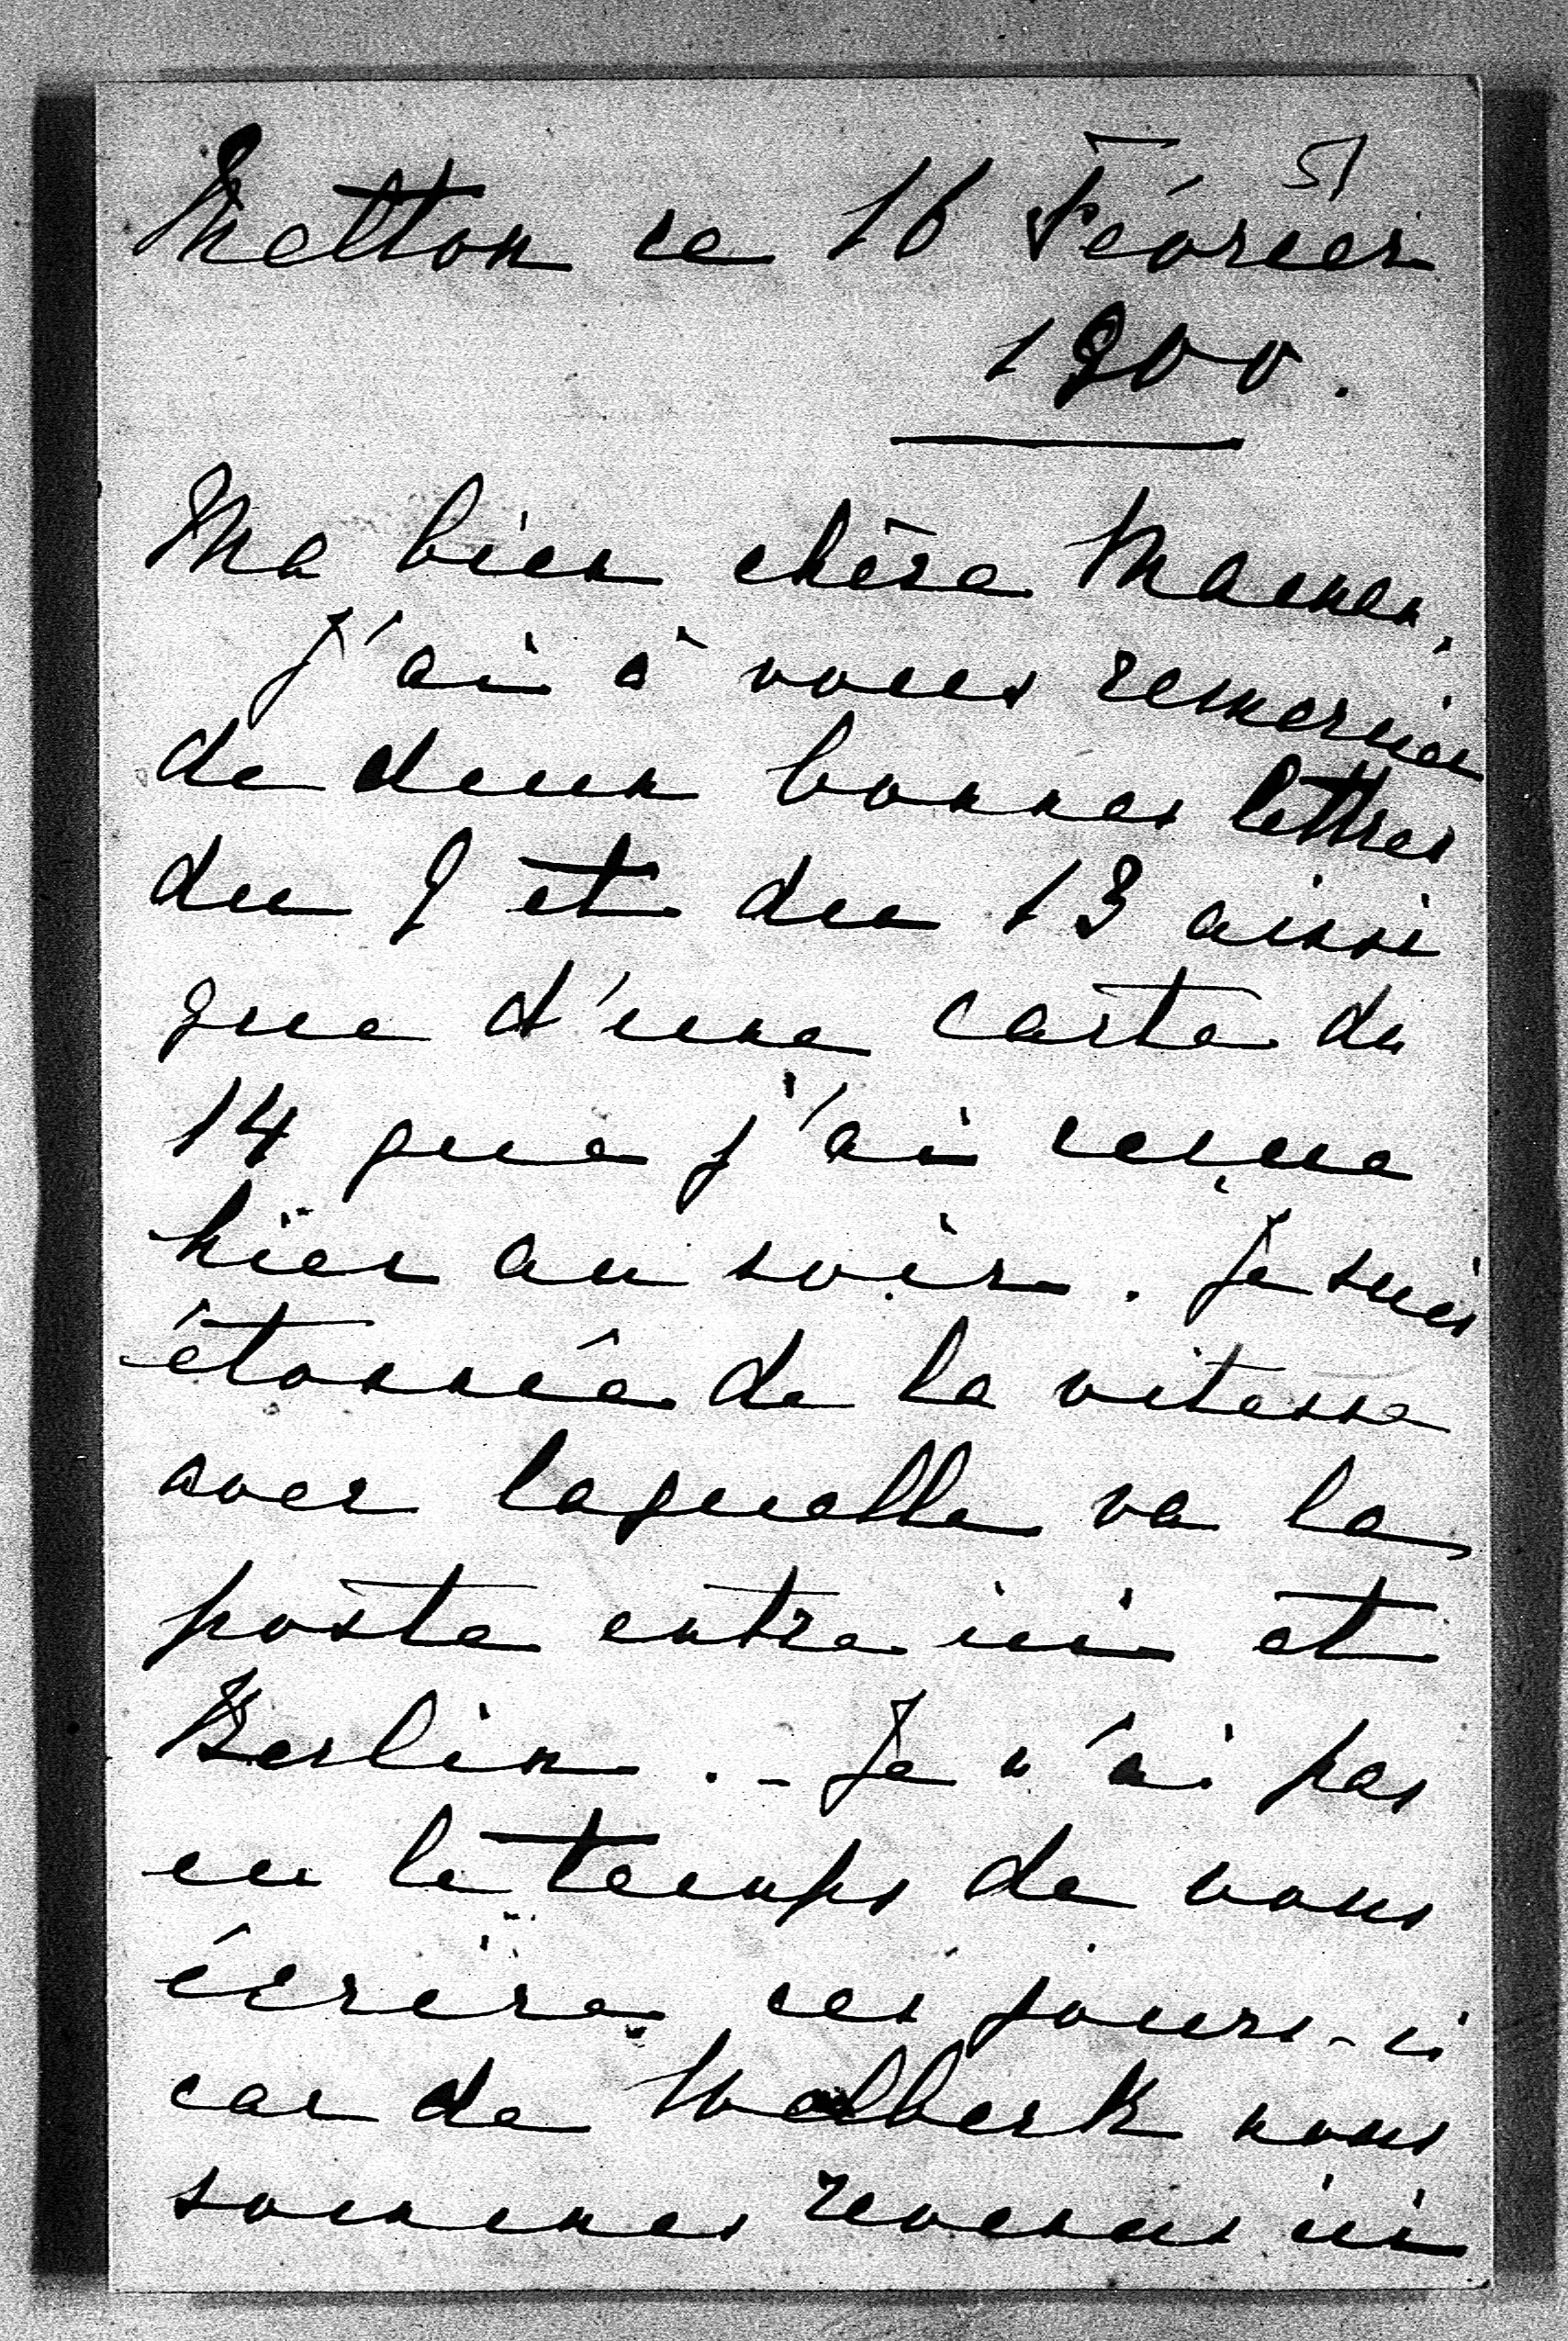 51
Melton ce 16 Février
1900.
Ma bien chère Maman,
J'ai à vous remercier
de deux bonnes lettres
du 9 et du 13 ainsi
que d'une carte du
14 que j'ai reçue
hier au soir. Je suis
étonnée de la vitesse
avec laquelle va la
poste entre ici et
Berlin. - Je n'ai pas
eu le temps de vous
écrire ces jours-ci
car de Welbeck nous
sommes revenus ici